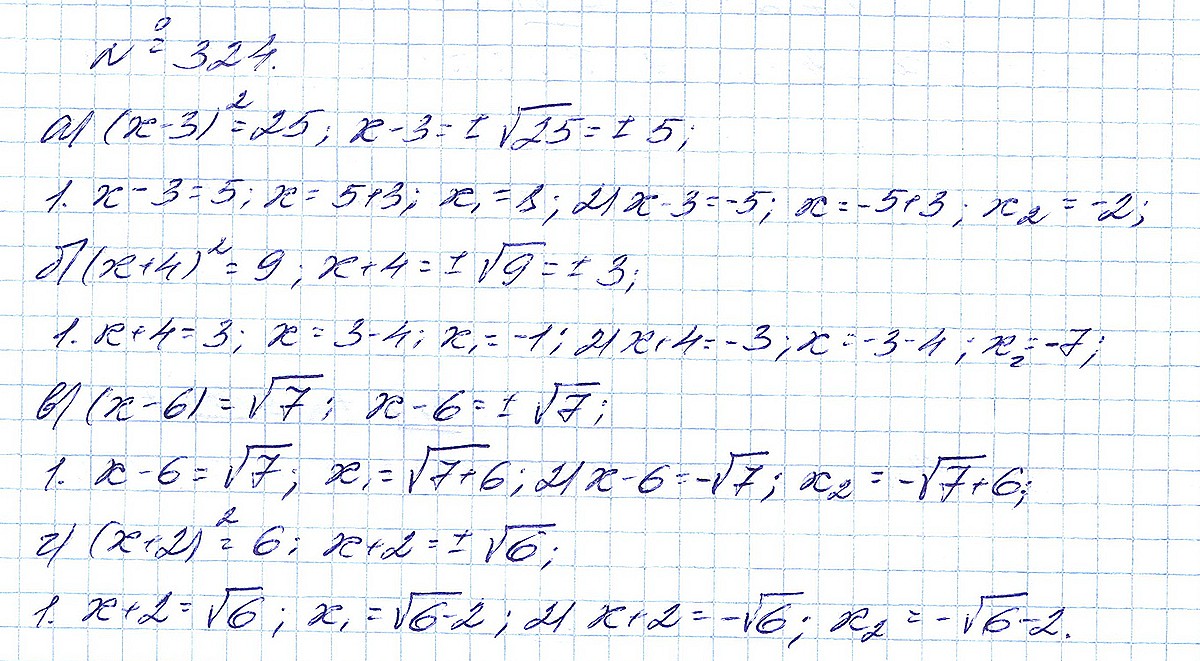 № 324.
а) (x-3)² = 25; x-3 = ± √25 = ± 5;
1. x-3 = 5; x = 5+3; x₁ = 8; 2) x-3 = -5; x = -5+3; x₂ = -2;
б) (x+4)² = 9; x+4 = ± √9 = ± 3;
1. x+4 = 3; x = 3-4; x₁ = -1; 2) x+4 = -3; x = -3-4; x₂ = -7;
в) (x-6) = √7; x-6 = ± √7;
1. x-6 = √7; x₁ = √7+6; 2) x-6 = -√7; x₂ = -√7+6;
г) (x+2)² = 6; x+2 = ± √6;
1. x+2 = √6; x₁ = √6-2; 2) x+2 = -√6; x₂ = -√6-2.